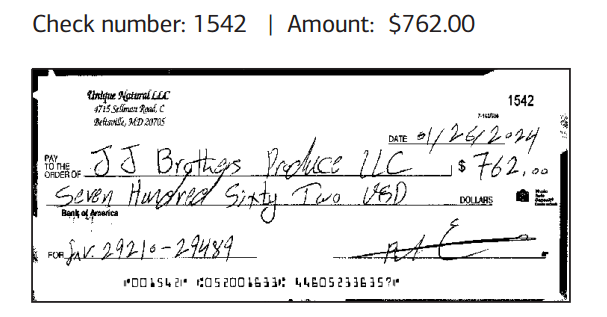 Check number: 1542 | Amount: $762.00
Unique Natural LLC
4715 Sellman Road, C
Beltsville, MD 20705
1542
DATE 01/26/2024
PAY TO THE ORDER OF JJ Brothers Produce LLC $ 762.00
Seven Hundred Sixty Two USD DOLLARS
Bank of America
FOR Inv. 29210-29489
⑈001542⑈ ⑆052001633⑆ 446052336357⑈